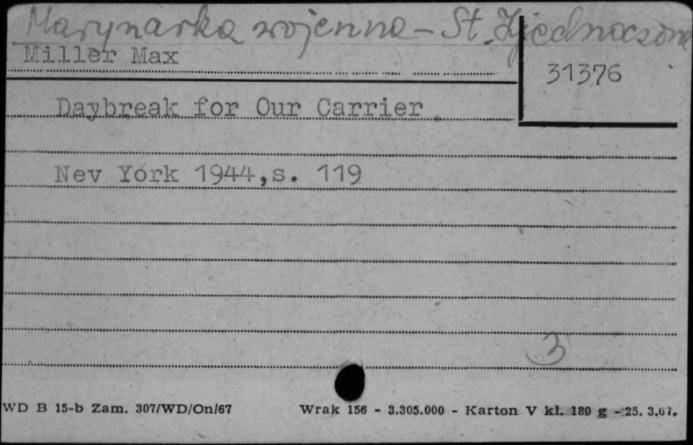 Marynarka wojenna - St. Zjednoczone
Miller Max
31376
Daybreak for Our Carrier.
Nev York 1944,s. 119
3
WD B 15-b Zam. 307/WD/On/67 Wrak 156 - 3.305.000 - Karton V kl. 180 g - 25. 3.67.